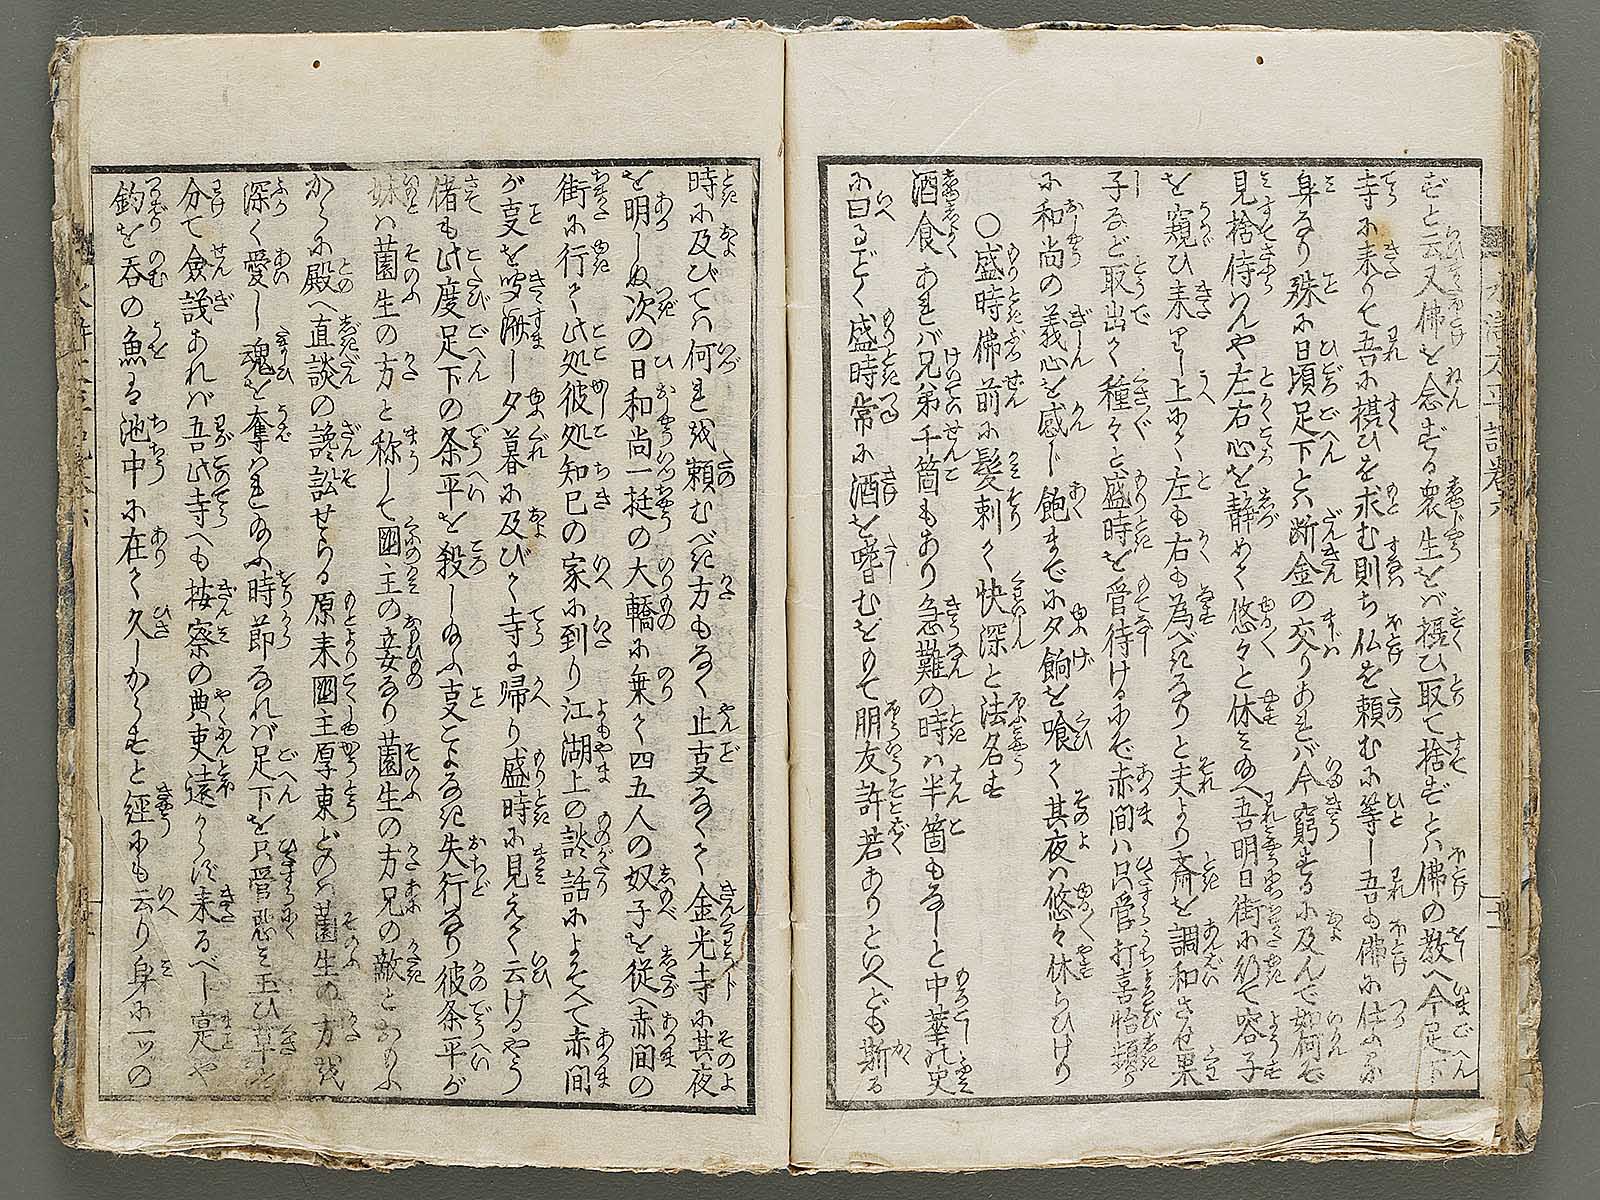 ずと云又佛を念ずる衆生をバ摂ひ取て捨ずとハ佛の教へ今足下
寺に来りて吾に摂ひを求む則ち仏を頼むに等し吾も佛に仕ふる
身なり殊に日頃足下とハ断金の交りあれバ今窮するに及んで如何で
見捨侍はんや左右心を静めて悠々と休み給へ吾明日街に行て容子
を窺ひ来りし上にて左も右も為べきなりと夫より斎を調和させ果
子など取出て種々と盛時を管待けるにぞ赤間ハ只管打喜怡頻り
に和尚の義心を感じ飽まで夕餉を喰て其夜ハ悠々休らひけり
〇盛時佛前に髪剃て快深と法名す
酒食あれバ兄弟千箇もあり急難の時ハ半箇もなしと中華の史
に曰るごとく盛時常に酒を嗜むをもて朋友許若ありといへども斯る
時に及びてハ何れを頼むべき方もなく止事なくて金光寺に其夜
を明しぬ次の日和尚一挺の大轎に乗て四五人の奴子を従へ赤間の
街に行て此処彼処知己の家に到り江湖上の談話によそへて赤間
が事を聞済し夕暮に及びて寺に帰り盛時に見えて云けるやう
偖も此度足下の条平を殺し給ふ事こよなき失行なり彼条平が
妹ハ薗生の方と称して國主の妾なり薗生の方兄の敵とおもふ
からに殿へ直談の讒訟せらる原来國主厚東どのハ薗生の方を
深く愛し魂を奪ハれ給ふ時節なれバ足下を只管恐み玉ひ草を
分て僉議あれバ吾此寺へも按察の典吏遠からず来るべし寔や
釣を呑の魚ハ池中に在て久しからずと經にも云り身に一ツの